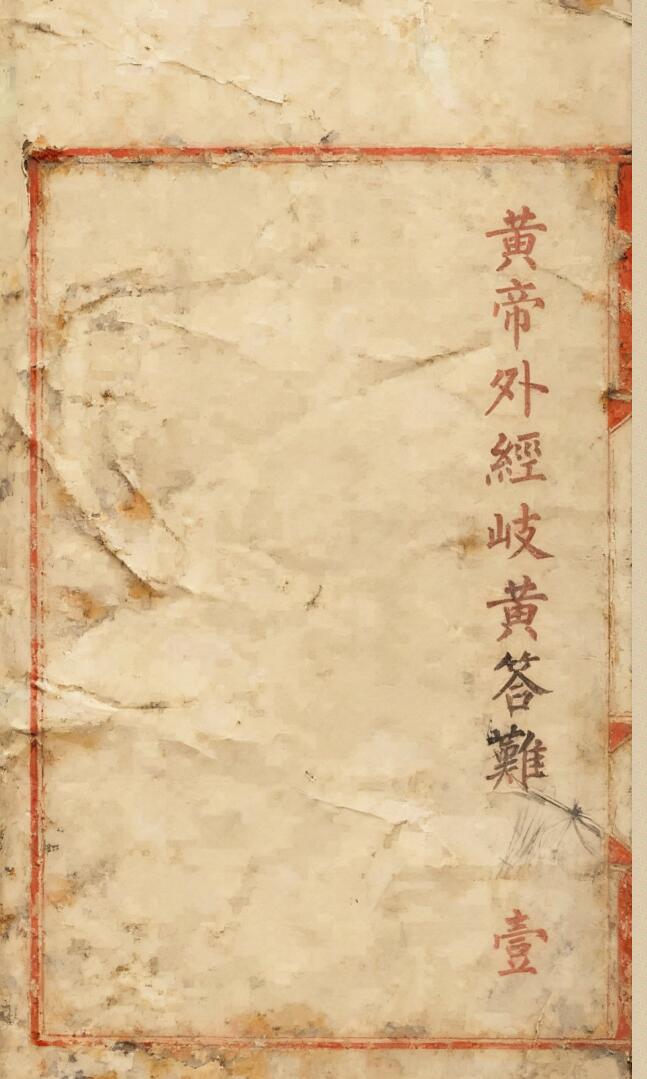 黃帝外經岐黃答難
壹